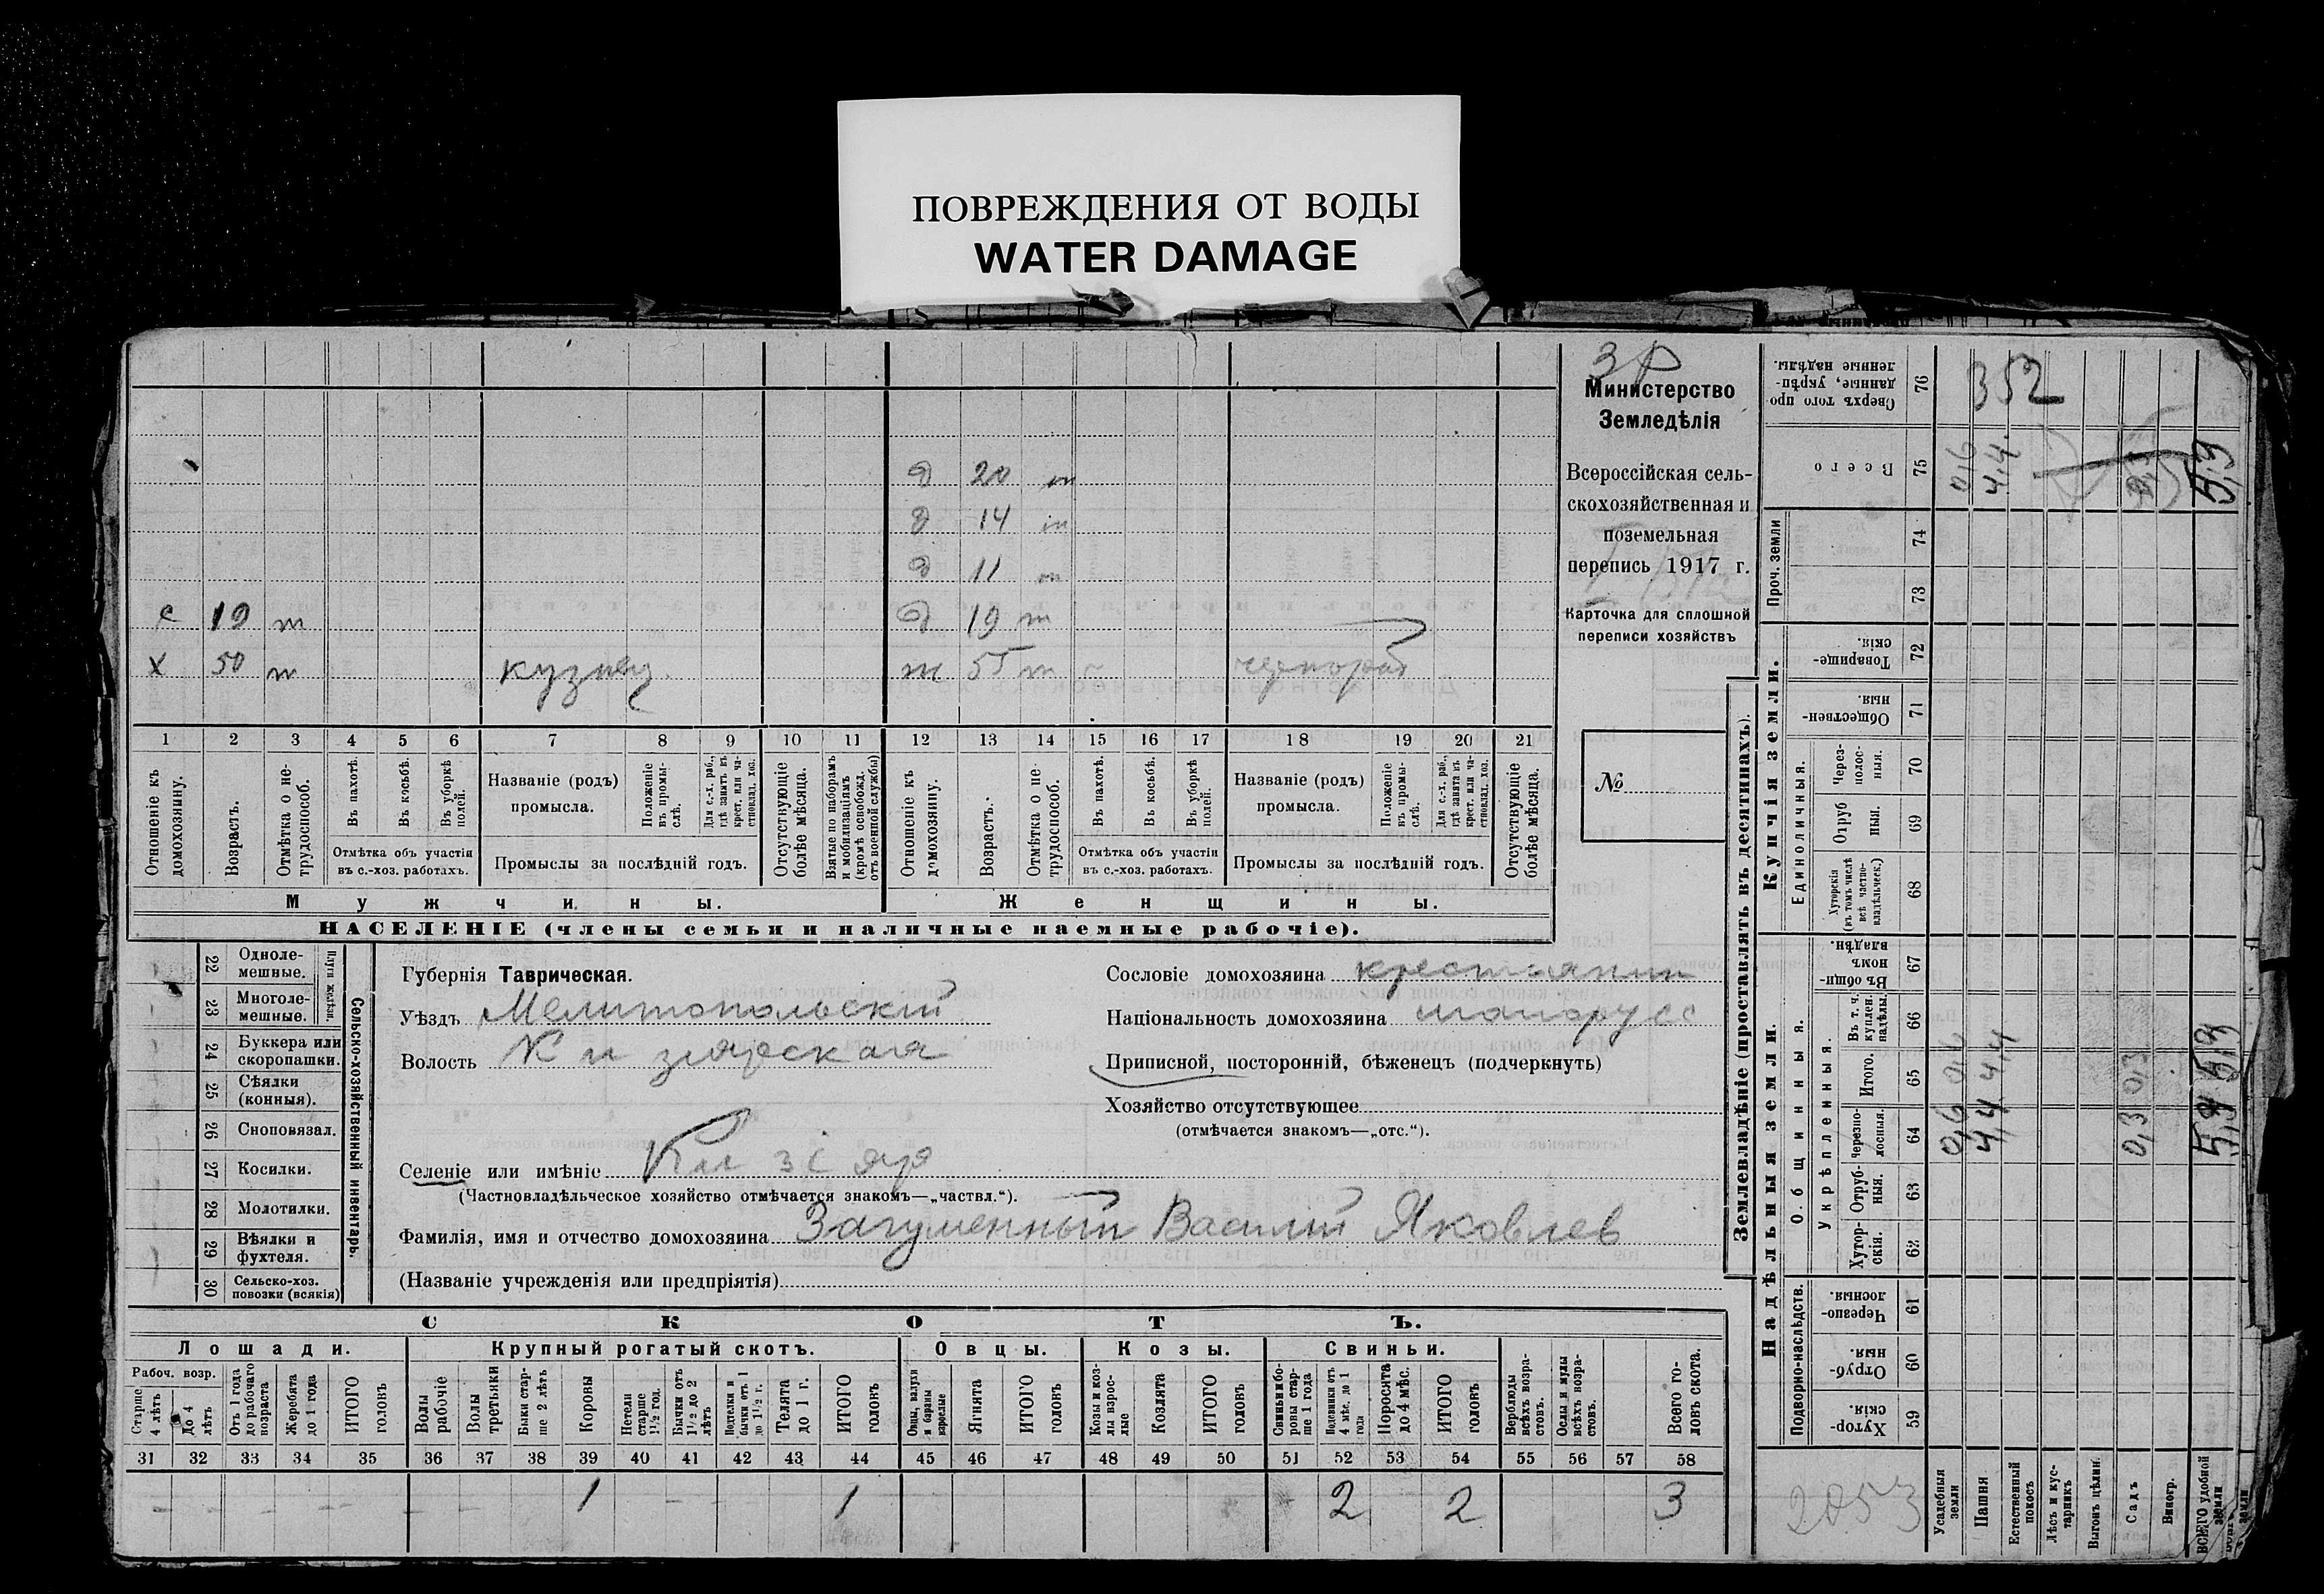 ПОВРЕЖДЕНИЯ ОТ ВОДЫ
WATER DAMAGE
3
Министерство
Земледѣлія
Всероссійская сель-
скохозяйственная и
поземельная
перепись 1917 г.
Карточка для сплошной
переписи хозяйствъ
№
д 20 т
д 14 т
д 11 т
с 19 т д 19 т
х 50 т кузнец ж 55 т
1 2 3 4 5 6 7 8 9 10 11 12 13 14 15 16 17 18 19 20 21
Отношеніе къ домохозяину.
Возрастъ.
Отмѣтка о не-трудоспособ.
Въ пахотѣ.
Въ косьбѣ.
Въ уборкѣ полей.
Отмѣтка объ участіи въ с.-хоз. работахъ.
Названіе (родъ) промысла.
Положеніе въ промы-слѣ.
Для с.-х. раб., гдѣ занятъ въ крест. или ча-стновлад. хоз.
Промыслы за послѣдній годъ.
Отсутствующіе болѣе мѣсяца.
Взятые по наборамъ и мобилизаціямъ (кромѣ освобожд. отъ военной службы)
Отношеніе къ домохозяину.
Возрастъ.
Отмѣтка о не-трудоспособ.
Въ пахотѣ.
Въ косьбѣ.
Въ уборкѣ полей.
Отмѣтка объ участіи въ с.-хоз. работахъ.
Названіе (родъ) промысла.
Положеніе въ промы-слѣ.
Для с.-х. раб., гдѣ занята въ крест. или ча-стновлад. хоз.
Промыслы за послѣдній годъ.
Отсутствующіе болѣе мѣсяца.
Мужчины. Женщины.
НАСЕЛЕНІЕ (члены семьи и наличные наемные рабочіе).
22 Одноле-мешные.
23 Многоле-мешные.
Плуги желѣзн.
24 Буккера или скоропашки.
25 Сѣялки (конныя).
26 Сноповязал.
27 Косилки.
28 Молотилки.
29 Вѣялки и фухтеля.
30 Сельско-хоз. повозки (всякія)
Сельско-хозяйственный инвентарь.
Губернія Таврическая.
Уѣздъ Мелитопольскій
Волость Кизіярская
Сословіе домохозяина крестьянин
Національность домохозяина малорусс
Приписной, посторонній, бѣженецъ (подчеркнуть)
Хозяйство отсутствующее
(отмѣчается знакомъ—„отс.“).
Селеніе или имѣніе Кизіяр
(Частновладѣльческое хозяйство отмѣчается знакомъ—„частвл.“).
Фамилія, имя и отчество домохозяина Загуменный Василій Яковлев
(Названіе учрежденія или предпріятія)
СКОТЪ.
Лошади. Крупный рогатый скотъ. Овцы. Козы. Свиньи.
Рабоч. возр.
Старше 4 лѣтъ
До 4 лѣтъ
Отъ 1 года до рабочаго возраста
Жеребята до 1 года
ИТОГО головъ
Волы рабочіе
Волы третьяки
Быки стар-ше 2 лѣтъ
Коровы
Нетели старше 1½ год.
Бычки отъ 1½ до 2 лѣтъ
Подтелки и бычки отъ 1 до 1½ г.
Телята до 1 г.
ИТОГО головъ
Овцы, валухи и бараны взрослые
Ягнята
ИТОГО головъ
Козы и коз-лы взрос-лые
Козлята
ИТОГО головъ
Свиньи и бо-ровы стар-ше 1 года
Подсвинки отъ 4 мѣс. до 1 года
Поросята до 4 мѣс.
ИТОГО головъ
Верблюды всѣхъ возра-стовъ.
Ослы и мулы всѣхъ возра-стовъ.
Всего го-ловъ скота.
31 32 33 34 35 36 37 38 39 40 41 42 43 44 45 46 47 48 49 50 51 52 53 54 55 56 57 58
1 1 2 2 3
Землевладѣніе (проставлять въ десятинахъ).
Надѣльныя земли. Купчія земли.
Подворно-наслѣдств. Общинныя. Укрѣпленныя. Единоличныя. Проч. земли
76 Сверхъ того про данные, укрѣп-ленные надѣлы.
352
75 Всего
0,6 4,4 5,3
74
73
72 Товарище-скія.
71 Обществен-ныя
70 Через-полос-ныя.
69 Отруб ныя.
68 Хуторскія (въ томъ числѣ всѣ частно-владѣльческ.)
67 Въ общи номъ владѣн.
66 Въ т. ч. куплен. надѣлы.
65 Итого.
0,6 4,4 0,3 5,3
64 Черезпо-лосныя.
0,6 4,4 0,3 5,3
63 Отруб-ныя.
62 Хутор-скія.
61 Черезпо-лосныя.
60 Отруб-ныя.
59 Хутор-скія
Усадебныя земли
Пашня
Естественный покосъ
Лѣсъ и кус-тарникъ
Выгонъ цѣлин.
Садъ
Виногр.
ВСЕГО удобной земли
2053